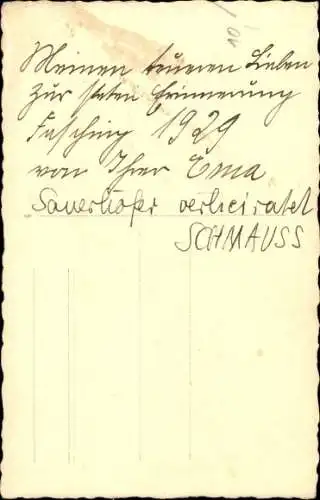 10
Meinen teueren Lieben
zur steten Erinnerung
Fasching 1929
von Ihrer Ema
Sauerhöfer verheiratet
SCHMAUSS